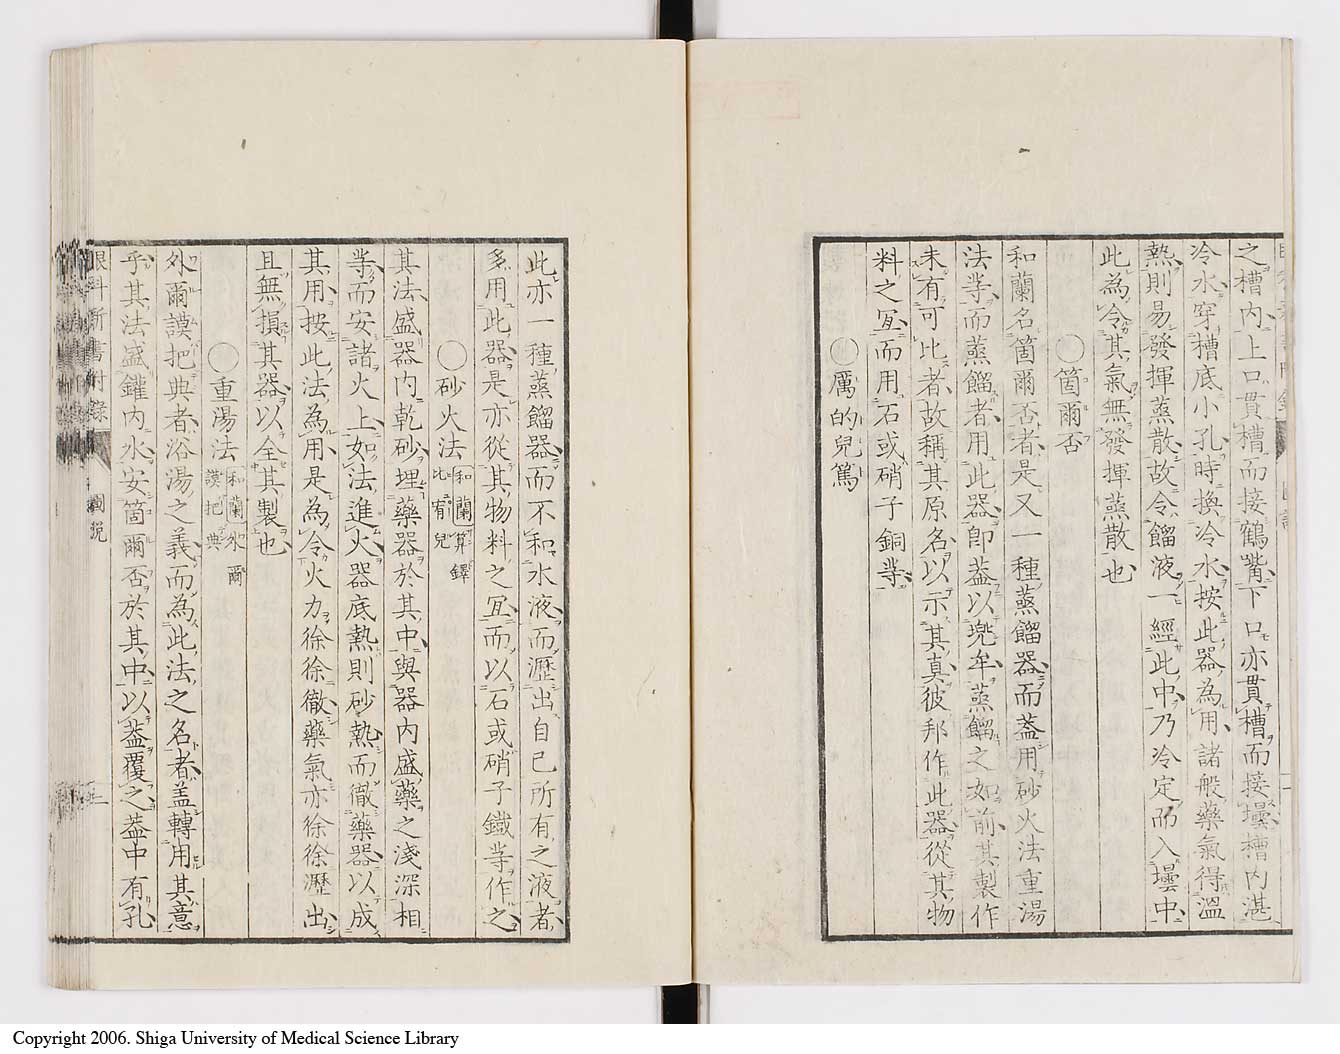 之槽内上口貫槽而接鶴嘴下口亦貫槽而接壜槽内湛
冷水穿槽底小孔時換冷水按此器為用諸般藥氣得温
熱則易發揮蒸散故令餾液一經此中乃冷定而入壜中
此為令其氣無發揮蒸散也
〇箇爾否
和蘭名箇爾否者是又一種蒸餾器而葢用砂火法重湯
法等而蒸餾者用此器卽葢以兜牟蒸餾之如前其製作
未有可比者故稱其原名以示其真彼邦作此器從其物
料之冝而用石或硝子銅等
〇厲的兒篤
此亦一種蒸餾器而不和水液而瀝出自己所有之液者
多用此器是亦從其物料之冝而以石或硝子鐵等作之
〇砂火法 和蘭算鐸比宥兒
其法盛器内乾砂埋藥器於其中與器内盛藥之淺深相
等而安諸火上如法進火器底熱則砂熱而徹藥器以成
其用按此法為用是為令火力徐徐徹藥氣亦徐徐瀝出
且無損其器以全其製也
〇重湯法 和蘭外爾謨把典
外爾謨把典者浴湯之義而為此法之名者盖轉用其意
乎其法盛鑵内水安箇爾否於其中以葢覆之葢中有孔
眼科新書附錄 圖説
Copyright 2006. Shiga University of Medical Science Library